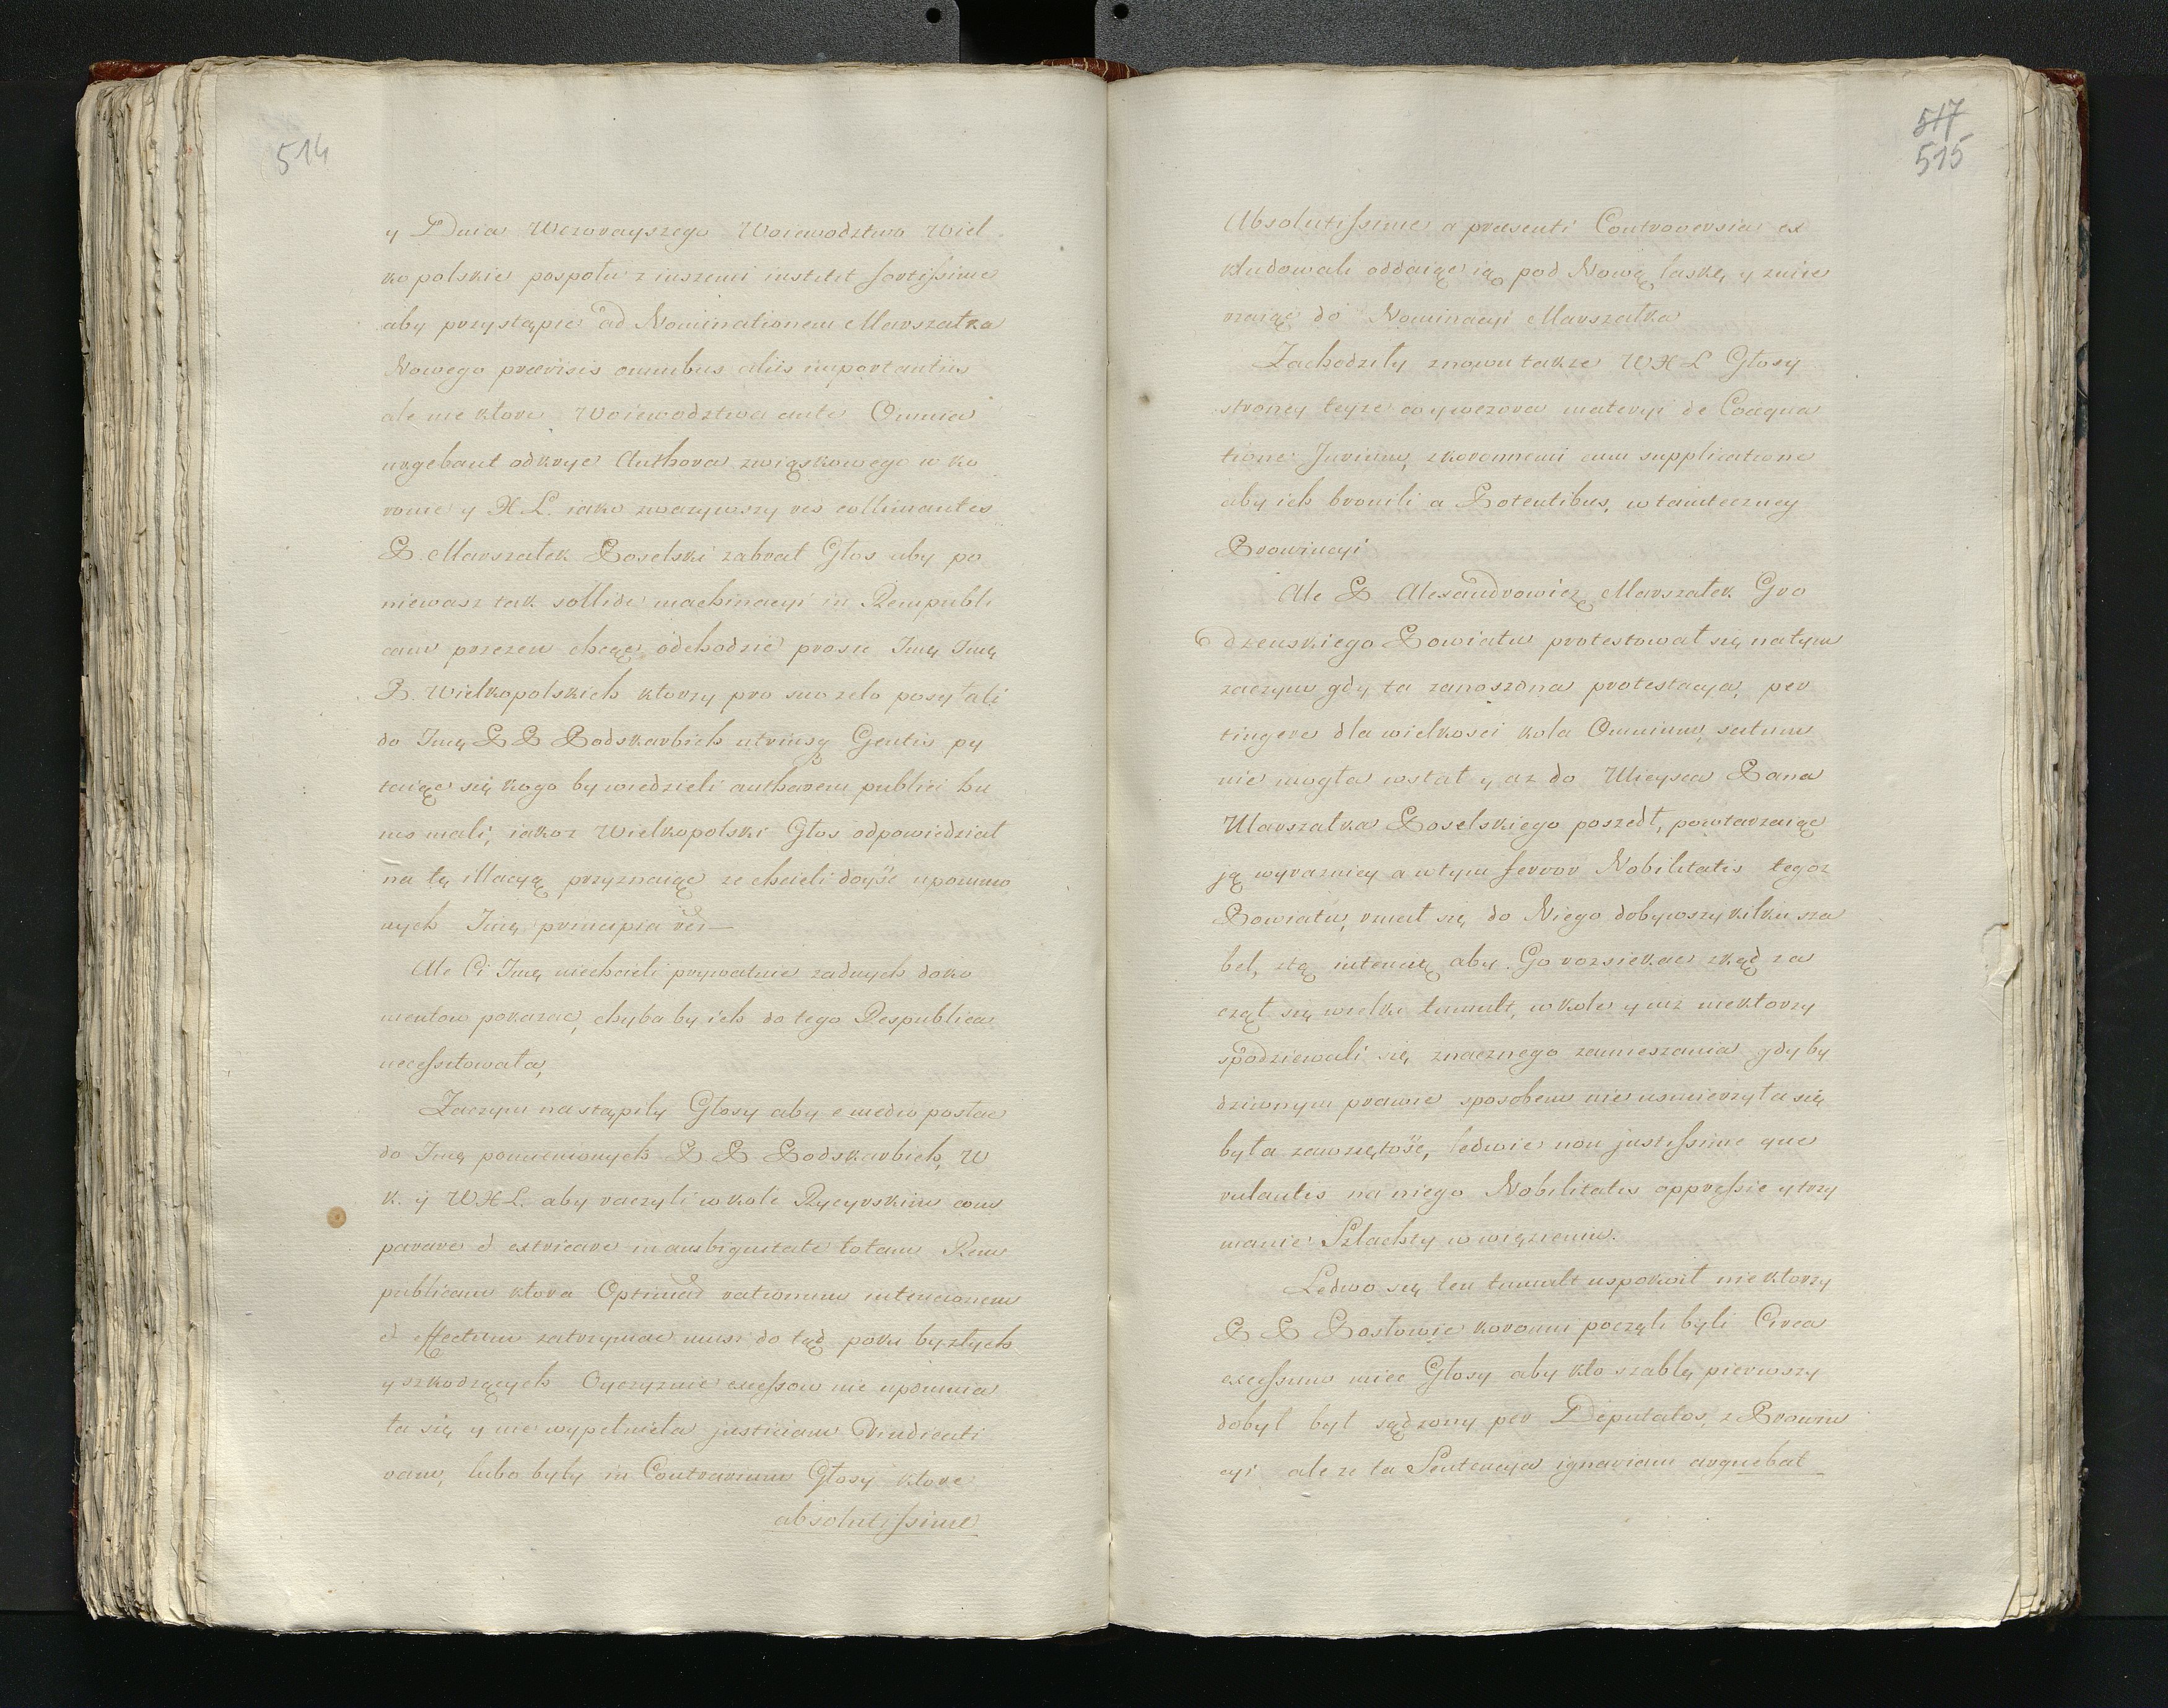 514
y Dnia Wczorayszego Woiewodztwa Wiel
kopolskie pospołu z inszemi institit fortissime
aby przystąpić ad Nominationem Marszałka
Nowego praevisis omnibus aliis importantiis
ale niektore Woiewodztwa ante Omnia
urgebant odkryć Authora związkowego w ko
ronie y X L. iako zwazywszy res collimantes
P. Marszałek Poselski zabrał Głos aby po
niewasz tak sollide machinacyi in Rempubli
cam przezen chcąc odchodzić prosić Imę Imę
P. Wielkopolskich ktorzy pro suo zelo posyłali
do Imę P P Podskarbich utriusq Gentis py
taiąc się kogo by wiedzieli authorem publici hu
ius mali, iakoz Wielkopolski Głos odpowiedział
na tę illacyą przyznaiąc ze chcieli doyść upomnio
nych Imę principia rei
Ale Ci Imę niechcieli prywatnie zadnych doku
mentow pokazać, chyba by ich do tego Respublica
necessitowała,
Zaczym nastąpiły Głosy aby e medio posłać
do Imę pomienionych P P Podskarbich, W
K. y WXL. aby raczyli w kole Rycyrskim com
parare et extricare in ambiguitate totam Rem
publicam ktora Optimam rationum intencionem
et effectum zatrzymać musi do tąd poku by złych
y szkodzących Oyczyznie excessow nie upomnia
ła się y nie wypełniła justiciam Vindicati
vam, lubo były in Contrarium Głosy ktore
absolutissime
517
515
Absolutissime a praesenti Controversia ex
kludowali oddaiąc ią pod Nową laskę y zmie
rzaiąc do Nominacyi Marszałka
Zachodziły znowu takze WXL Głosy
strony teyze co y wczora materyi de Coaequa
tione Jurium, z koronnemi cum supplicatione
aby ich bronili a Potentibus, w tamteczney
Prowincyi
Ale P Alexandrowicz Marszałek Gro
dzenskiego Powiatu protestował się na tym
zaczym gdy ta zanoszona protestacya, per
tingere dla wielkosci koła Omnium, satum
nie mogła wstał y az do Mieysca Pana
Marszałka Poselskiego poszedł, powtarzaiąc
ją wyrazniey a w tym fervor Nobilitatis tegoz
Powiatu, rzucił się do Niego dobywszy kilku sza
bel, z tą intencią aby Go rozsiekać zkąd za
czął się wielki tumult, w kole y iuz niektorzy
spodziewali się znacznego zamieszania gdyby
dziwnym prawie sposobem nie usmierzyła się
była zawziętość, ledwie non justissime que
rulantis na niego Nobilitatis oppressie y trzy
manie Szlachty w więzieniu.
Ledwo się ten tumult uspokoił niektorzy
P P Posłowie koronni poczęli byli Circa
excessum miec Głosy aby kto szablę pierwszy
dobył był sądzony per Deputatos, z Prowin
cyi ale ze ta Sentencya ignaviam arguebat